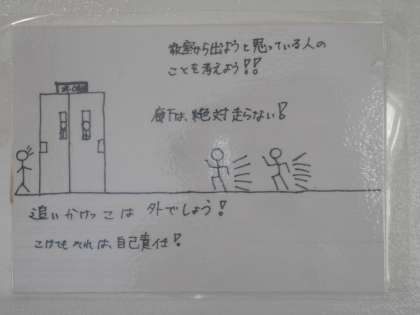 教室から出ようと思っている人の
ことを考えよう!!
廊下は、絶対走らない!
追いかけっこは 外でしょう!
こけても それは、自己責任!